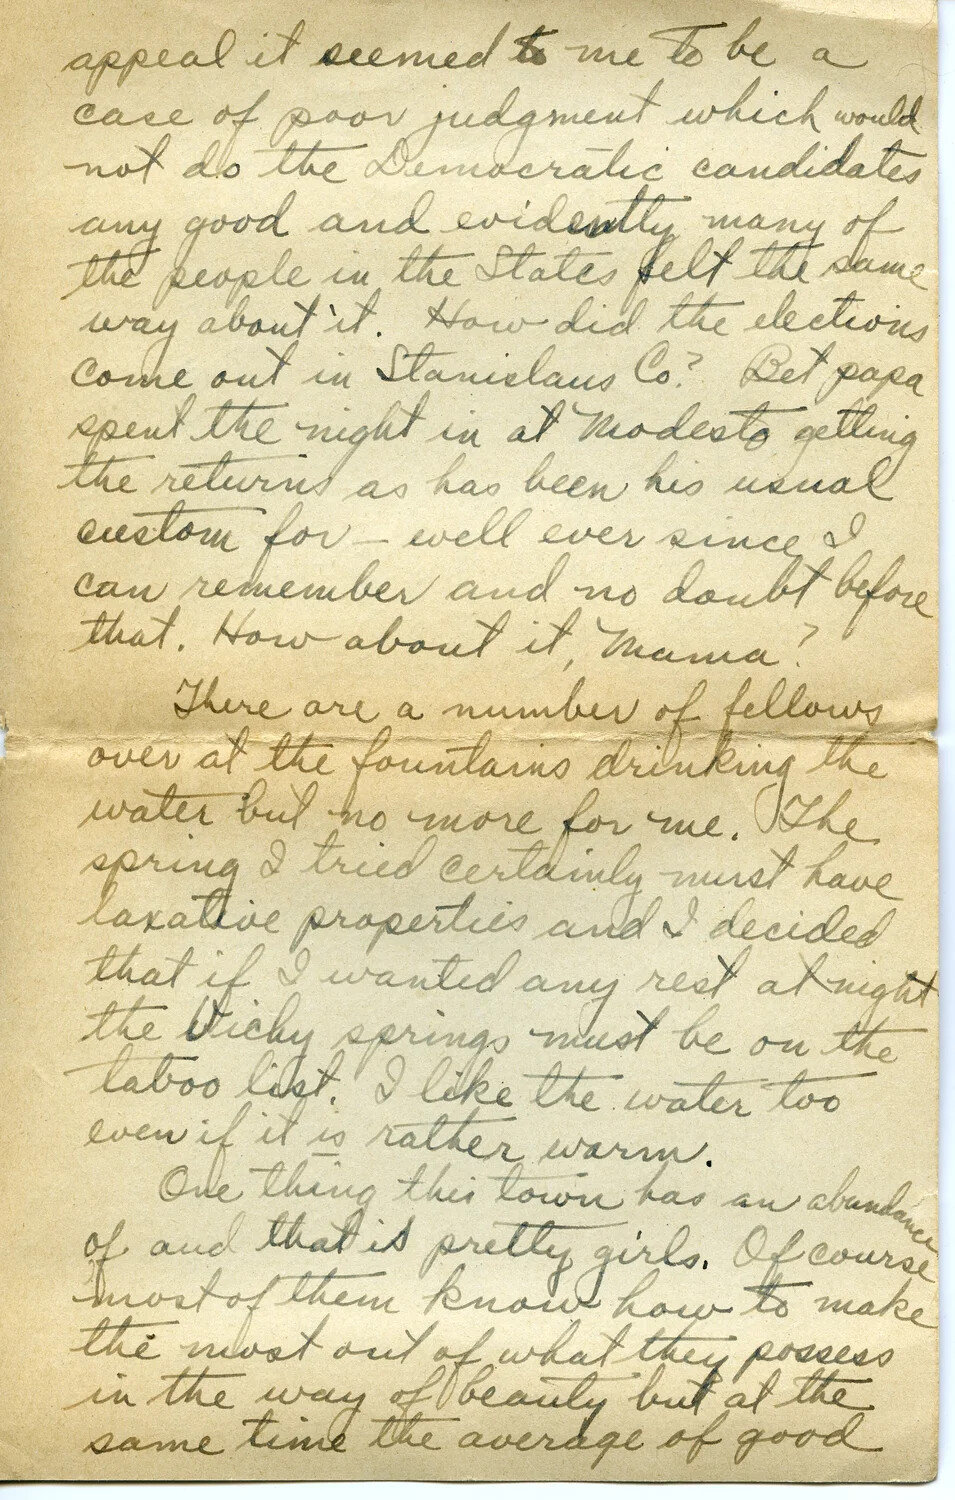 appeal it seemed to me to be a
case of poor judgment which would
not do the Democratic candidates
any good and evidently many of
the people in the States felt the same
way about it. How did the elections
come out in Stanislaus Co? Bet papa
spent the night in at Modesto getting
the returns as has been his usual
custom for — well ever since I
can remember and no doubt before
that. How about it, Mama?
There are a number of fellows
over at the fountains drinking the
water but no more for me. The
spring I tried certainly must have
laxative properties and I decided
that if I wanted any rest at night
the Vichy springs must be on the
taboo list. I like the water too
even if it is rather warm.
One thing this town has an abundance
of and that is pretty girls. Of course
most of them know how to make
the most out of what they possess
in the way of beauty but at the
same time the average of good